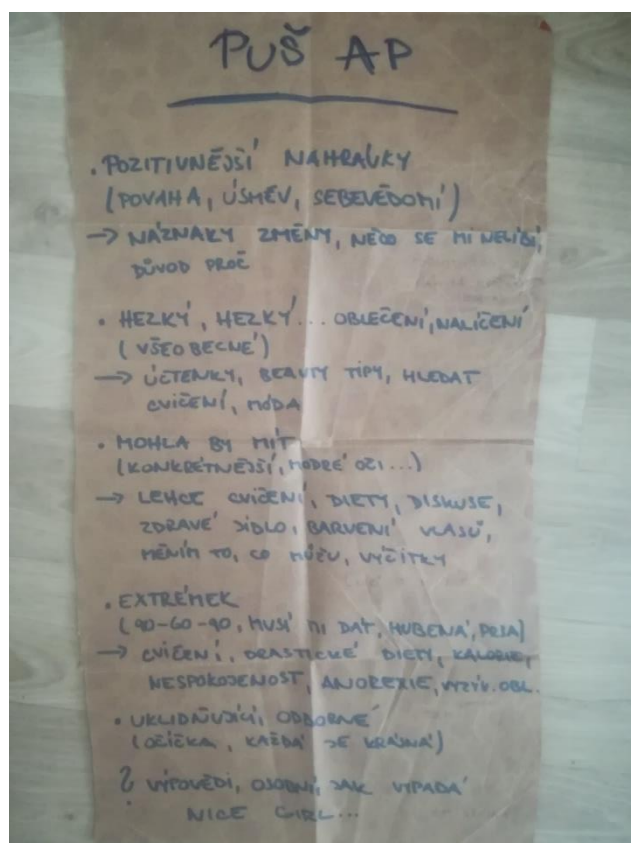 PUŠ AP
• POZITIVNĚJŠÍ NAHRÁVKY
(POVAHA, ÚSMĚV, SEBEVĚDOMÍ)
→ NÁZNAKY ZMĚNY, NĚCO SE MI NELÍBÍ,
DŮVOD PROČ
• HEZKÝ, HEZKÝ... OBLEČENÍ, NALÍČENÍ
(VŠEOBECNÉ)
→ ÚČTENKY, BEAUTY TIPY, HLEDAT
CVIČENÍ, MÓDA
• MOHLA BY MÍT
(KONKRÉTNĚJŠÍ, MODRÉ OČI...)
→ LEHCE CVIČENÍ, DIETY, DISKUSE,
ZDRAVÉ JÍDLO, BARVENÍ VLASŮ,
MĚNÍM TO, CO MŮŽU, VÝČITKY
• EXTRÉMEK
(90-60-90, MUSÍ MI DÁT, HUBENÁ, PRSA)
→ CVIČENÍ, DRASTICKÉ DIETY, KALORIE,
NESPOKOJENOST, ANOREXIE, VYZÝV. OBL.
• UKLIDŇUJÍCÍ, ODBORNÉ
(OČIČKA, KAŽDÁ JE KRÁSNÁ)
? VÝPOVĚDI, OSOBNÍ, JAK VYPADÁ
NICE GIRL...